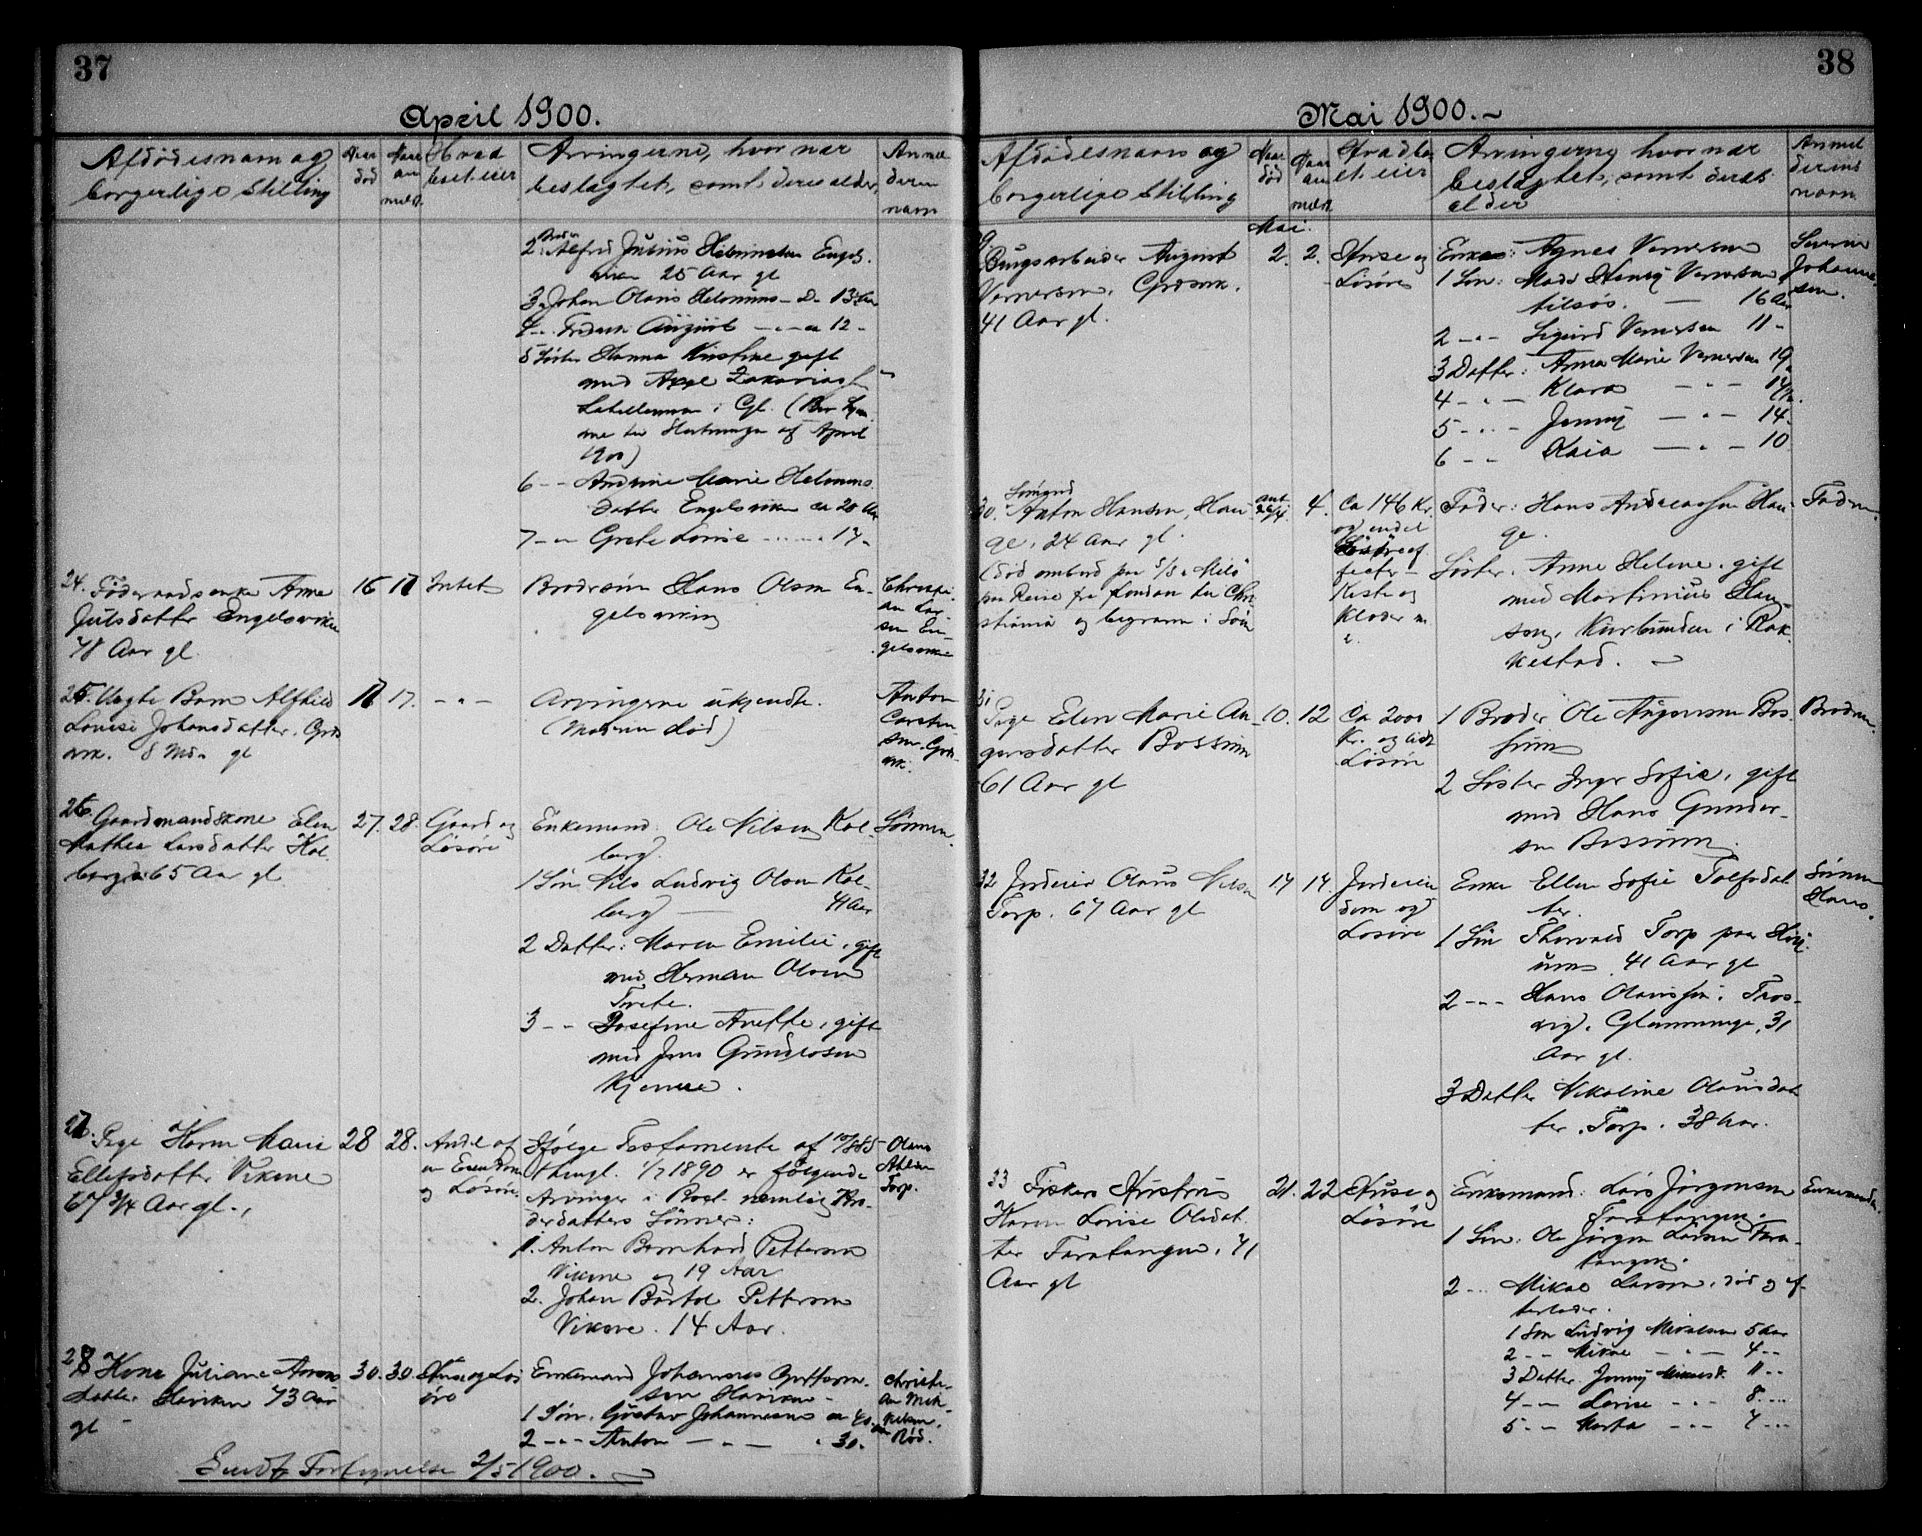 37
April 1900.
Afdödesnavn og
borgerlige Stilling
Naar
död
Naar
an
meldt
Hvad
boet eier
Arvingerne, hvor nær
beslægtet, samt deres alder,
Anmel
deren
navn
2. Alfred Julius Helminsen Engels
viken 25 Aar gl
3. Johan Olavis Helmins - Do 13 Aar
4 - . Fredrik August - " - ca 12 -
5 Söster Hanna Kristine gift
med Axel Zakariasen
i Gl. (
af April
1900)
6 - - Andrine Marie Helmins
datter Engelsviken ca 20 Aar
7 - - Grete Lovise
24. Föderaadsenke Anne
Julsdatter Engelsviken
78 Aar gl.
16
17
Intet
Brodersön Hans Olsen En-
gelsviken
Christi-
an Lar-
sen En-
gelsviken
25. Uægte Barn Alfhild
Lovise Johansdatter,
8 Md. gl
17
17.
- " -
Arvingerne ukjendte.
(Moderen död)
Anton
Carsten
sen
26. Gaardmandskone Elen
Mathea Larsdatter Kol-
berg 65 Aar gl
27.
28.
Gaard og
Lösöre
Enkemand. Ole Nilsen Kol-
berg
1 Sön Nils Ludvig Olsen Kol-
berg - 41 Aar
2 Datter: Maren Emilie, gift
med Herman Olsen
Tvete.
3 - - Josefine Anette, gift
med Jens Gundersen
Kjenne.
Sönnen.
27. Pige Karen Marie
Ellefsdatter Vikene
67 3/4 Aar gl.,
28
28.
Andel af
en Eiendom
og Lösöre
Ifölge Testamente af
thingl. 1/7 1890 er fölgende
Arvinger i Boet nemlig Bro-
derdatters Sönner:
1. Anton Bernhard Pettersen
Vikene og 19 Aar
2. Johan Bertol Pettersen
Vikene. 14 Aar.
Olaus
Torp.
28 Kone Juliane Arons
datter Slaviken 73 Aar
gl
30.
30.
Huse og Lös
öre
Enkemand Johannes
sen Slaviken
1 Sön. Gustav Johannesen ca 40 Aar
2 - " - Anton - " - 30.
Christi-
an Mik-
kelsen.
Röd.
Sendt Fortegnelse 2/5 1900.
38
Mai 1900.
Afdödesnavn og
borgerlige Stilling
Naar
död
Naar
an
meldt
Hvad bo
et eier
Arvingerne, hvor nær
beslægtet, samt deres
alder
Anmel
derens
navn
Mai.
Brugsarbeider August
Vernersen,
41 Aar gl.
2.
2.
Huse og
Lösöre
Enke: Agnes Vernersen
1 Sön: Mads Henry Vernersen
tilsös. - 16 Aar
2 - " - Sigurd Vernersen 11 -
3 Datter: Anna Marie Vernersen 19
4 - " - Klara - " -
5 - " - Jenny - " - 14
6 - " Kaia - " - 10
Severin
Johanne-
sen.
30. Sömand
Anton Hansen, Hau-
ge, 24 Aar gl.
(död ombord paa
paa Reise fra London til Chri-
stiania og begraven i Söen
4.
Ca 146 Kr.
og endel
fecter -
Kiste og
Klæder m.
Fader: Hans Andreassen Hau-
ge.
Söster. Anne Helene, gift
med Martinius Han-
sen, i Rak-
kestad.
Faderen.
31
Pige Elen Marie Au-
gensdatter Bossum
61 Aar gl
10.
12
Ca 2000
Kr. og lidt
Lösöre
1 Broder Ole Augensen Bos-
sum
2 Söster Inger Sofie, gift
med Hans Gunder-
sen Bossum
Broderen.
32 Jordeier Olaus Nilsen
Torp. 67 Aar gl
14
14.
Jordeien
dom og
Lösöre
Enke Ellen Sofie Tolfsdat
ter.
1 Sön Thorvald Torp paa
41 Aar gl
2 - " - Hans Olaussen i Tros-
vig, Glemminge, 31
Aar gl.
3 Datter Nikoline Olausdat
ter. Torp. 38 Aar.
Sönnen
Hans.
33 Fiskers Hustru
Karen Lovise Olsdat-
ter Taratangen, 71
Aar gl
21.
22
Huse og
Lösöre
Enkemand: Lars Jörgensen
Taratangen.
1 Sön: Ole Jörgen Larsen Tara-
tangen.
2 - " Mikal Larsen, död og ef-
terlader.
1 Sön Ludvig Mikalsen 5 Aar
2 - - Mikal - " - 4 - -
3 Datter Jenny Mikalsd. 11 - -
4 - - Lovise - " - 8 - -
5 - - Marta - " - 7 - -
Enkemanden.